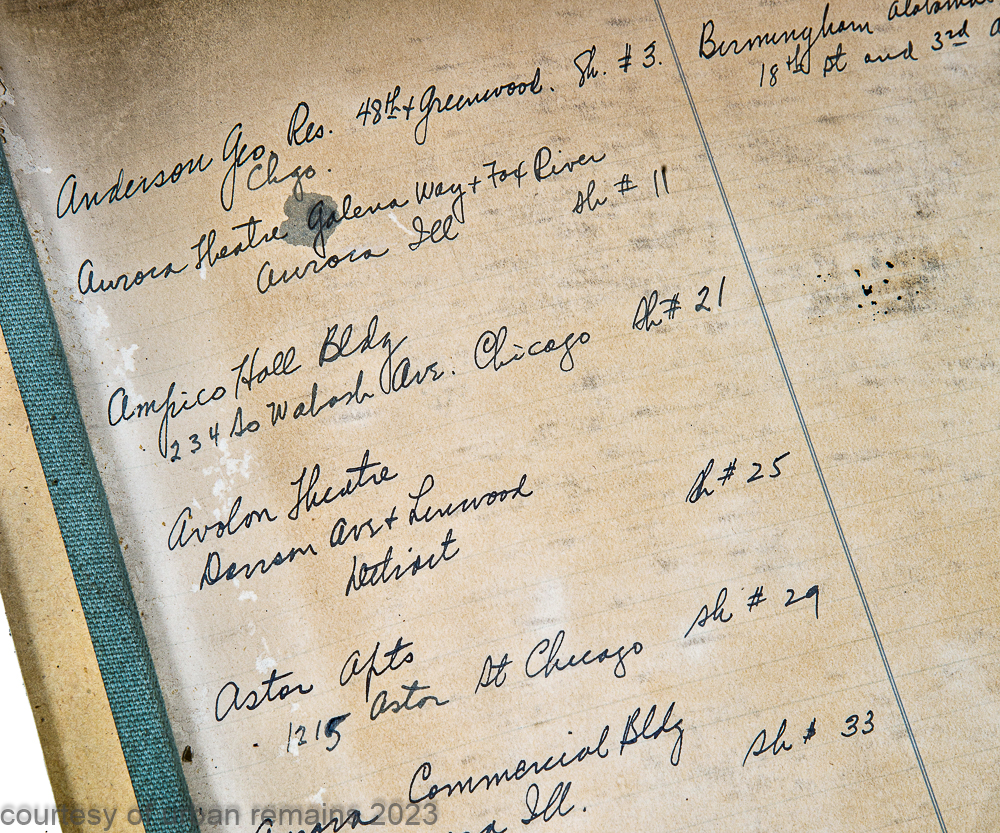 Anderson Geo. Res. 48th + Greenwood. Sh. # 3.
Chgo.
Aurora Theatre Galena Way + Fox River
Aurora Ill sh # 11
Ampico Hall Bldg
234 So Wabash Ave. Chicago Sh # 21
Avalon Theatre
Davison Ave + Linwood Sh # 25
Detroit
Astor Apts
1215 Astor St Chicago sh # 29
Aurora Commercial Bldg
Ill. sh # 33
Birmingham Alabama
18th St and 3rd
courtesy of urban remains 2023